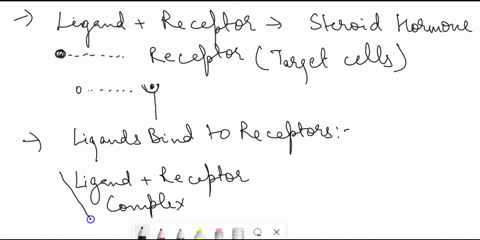 → Ligand + Receptor → Steroid Hormone
Receptor (Target cells)
→ Ligands Bind to Receptors:-
Ligand + Receptor
Complex